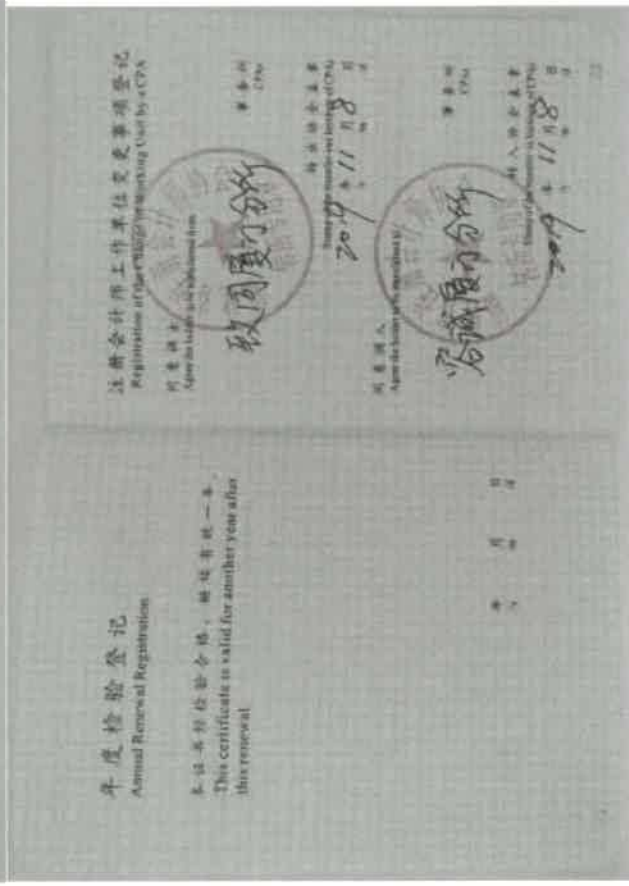 年度检验登记
Annual Renewal Registration
本证书经检验合格，继续有效一年。
This certificate is valid for another year after
this renewal
年 月 日
/y /m /d
注册会计师工作单位变更事项登记
Registration of the Change of Working Unit by a CPA
同意调出
Agree the holder to be transferred from
致同厦门分所
事务所
CPAs
转出协会盖章
Stamp of the transfer-out Institute of CPAs
2019 年 11 月 8 日
/y /m /d
同意调入
Agree the holder to be transferred to
容诚厦门分所
事务所
CPAs
转入协会盖章
Stamp of the transfer-in Institute of CPAs
2019 年 11 月 8 日
/y /m /d